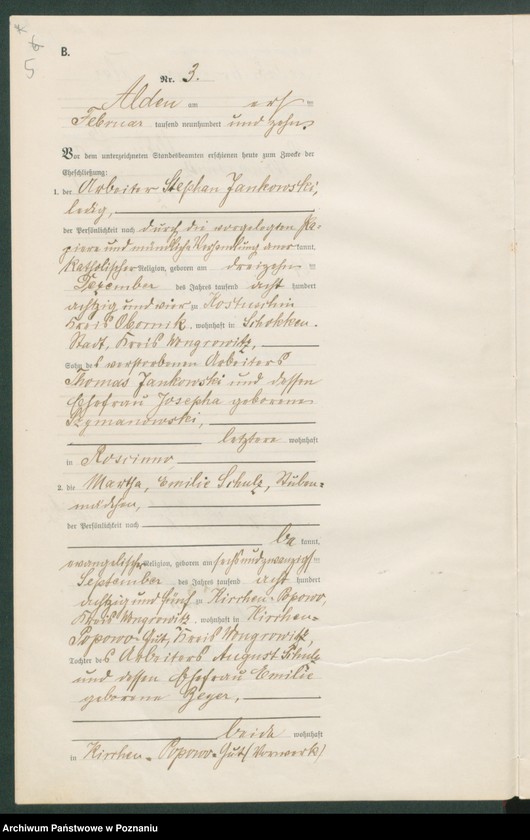 6
5
B.
Nr. 3.
Alden am erst en
Februar tausend neunhundert und zehn.
Vor dem unterzeichneten Standesbeamten erschienen heute zum Zwecke der
Eheschließung:
1. der Arbeiter Stephan Jankowski,
ledig,
der Persönlichkeit nach durch die vorgelegten Pa-
piere und mündliche Verhandlung aner kannt,
katholischer Religion, geboren am dreizehn ten
Dezember des Jahres tausend acht hundert
achtzig und vier zu
Kreis Obornik, wohnhaft in Schokken-
Stadt, Kreis Wngrowitz,
Sohn des verstorbenen Arbeiters
Thomas Jankowski und dessen
Ehefrau Josepha geborene
Szymanowski,
letztere wohnhaft
in Roscinno,
2. die Martha, Emilie Schulz, Stuben-
mädchen,
der Persönlichkeit nach
be kannt,
evangelischer Religion, geboren am sechsundzwanzigst en
September des Jahres tausend acht hundert
achtzig und fünf zu Kirchen-Popowo,
Kreis Wngrowitz, wohnhaft in Kirchen-
Popowo-Gut, Kreis Wngrowitz,
Tochter des Arbeiters August Schulz
und dessen Ehefrau Emilie
geborene Geyer,
beide wohnhaft
in Kirchen-Popowo-Gut (Vorwerk)
Archiwum Państwowe w Poznaniu